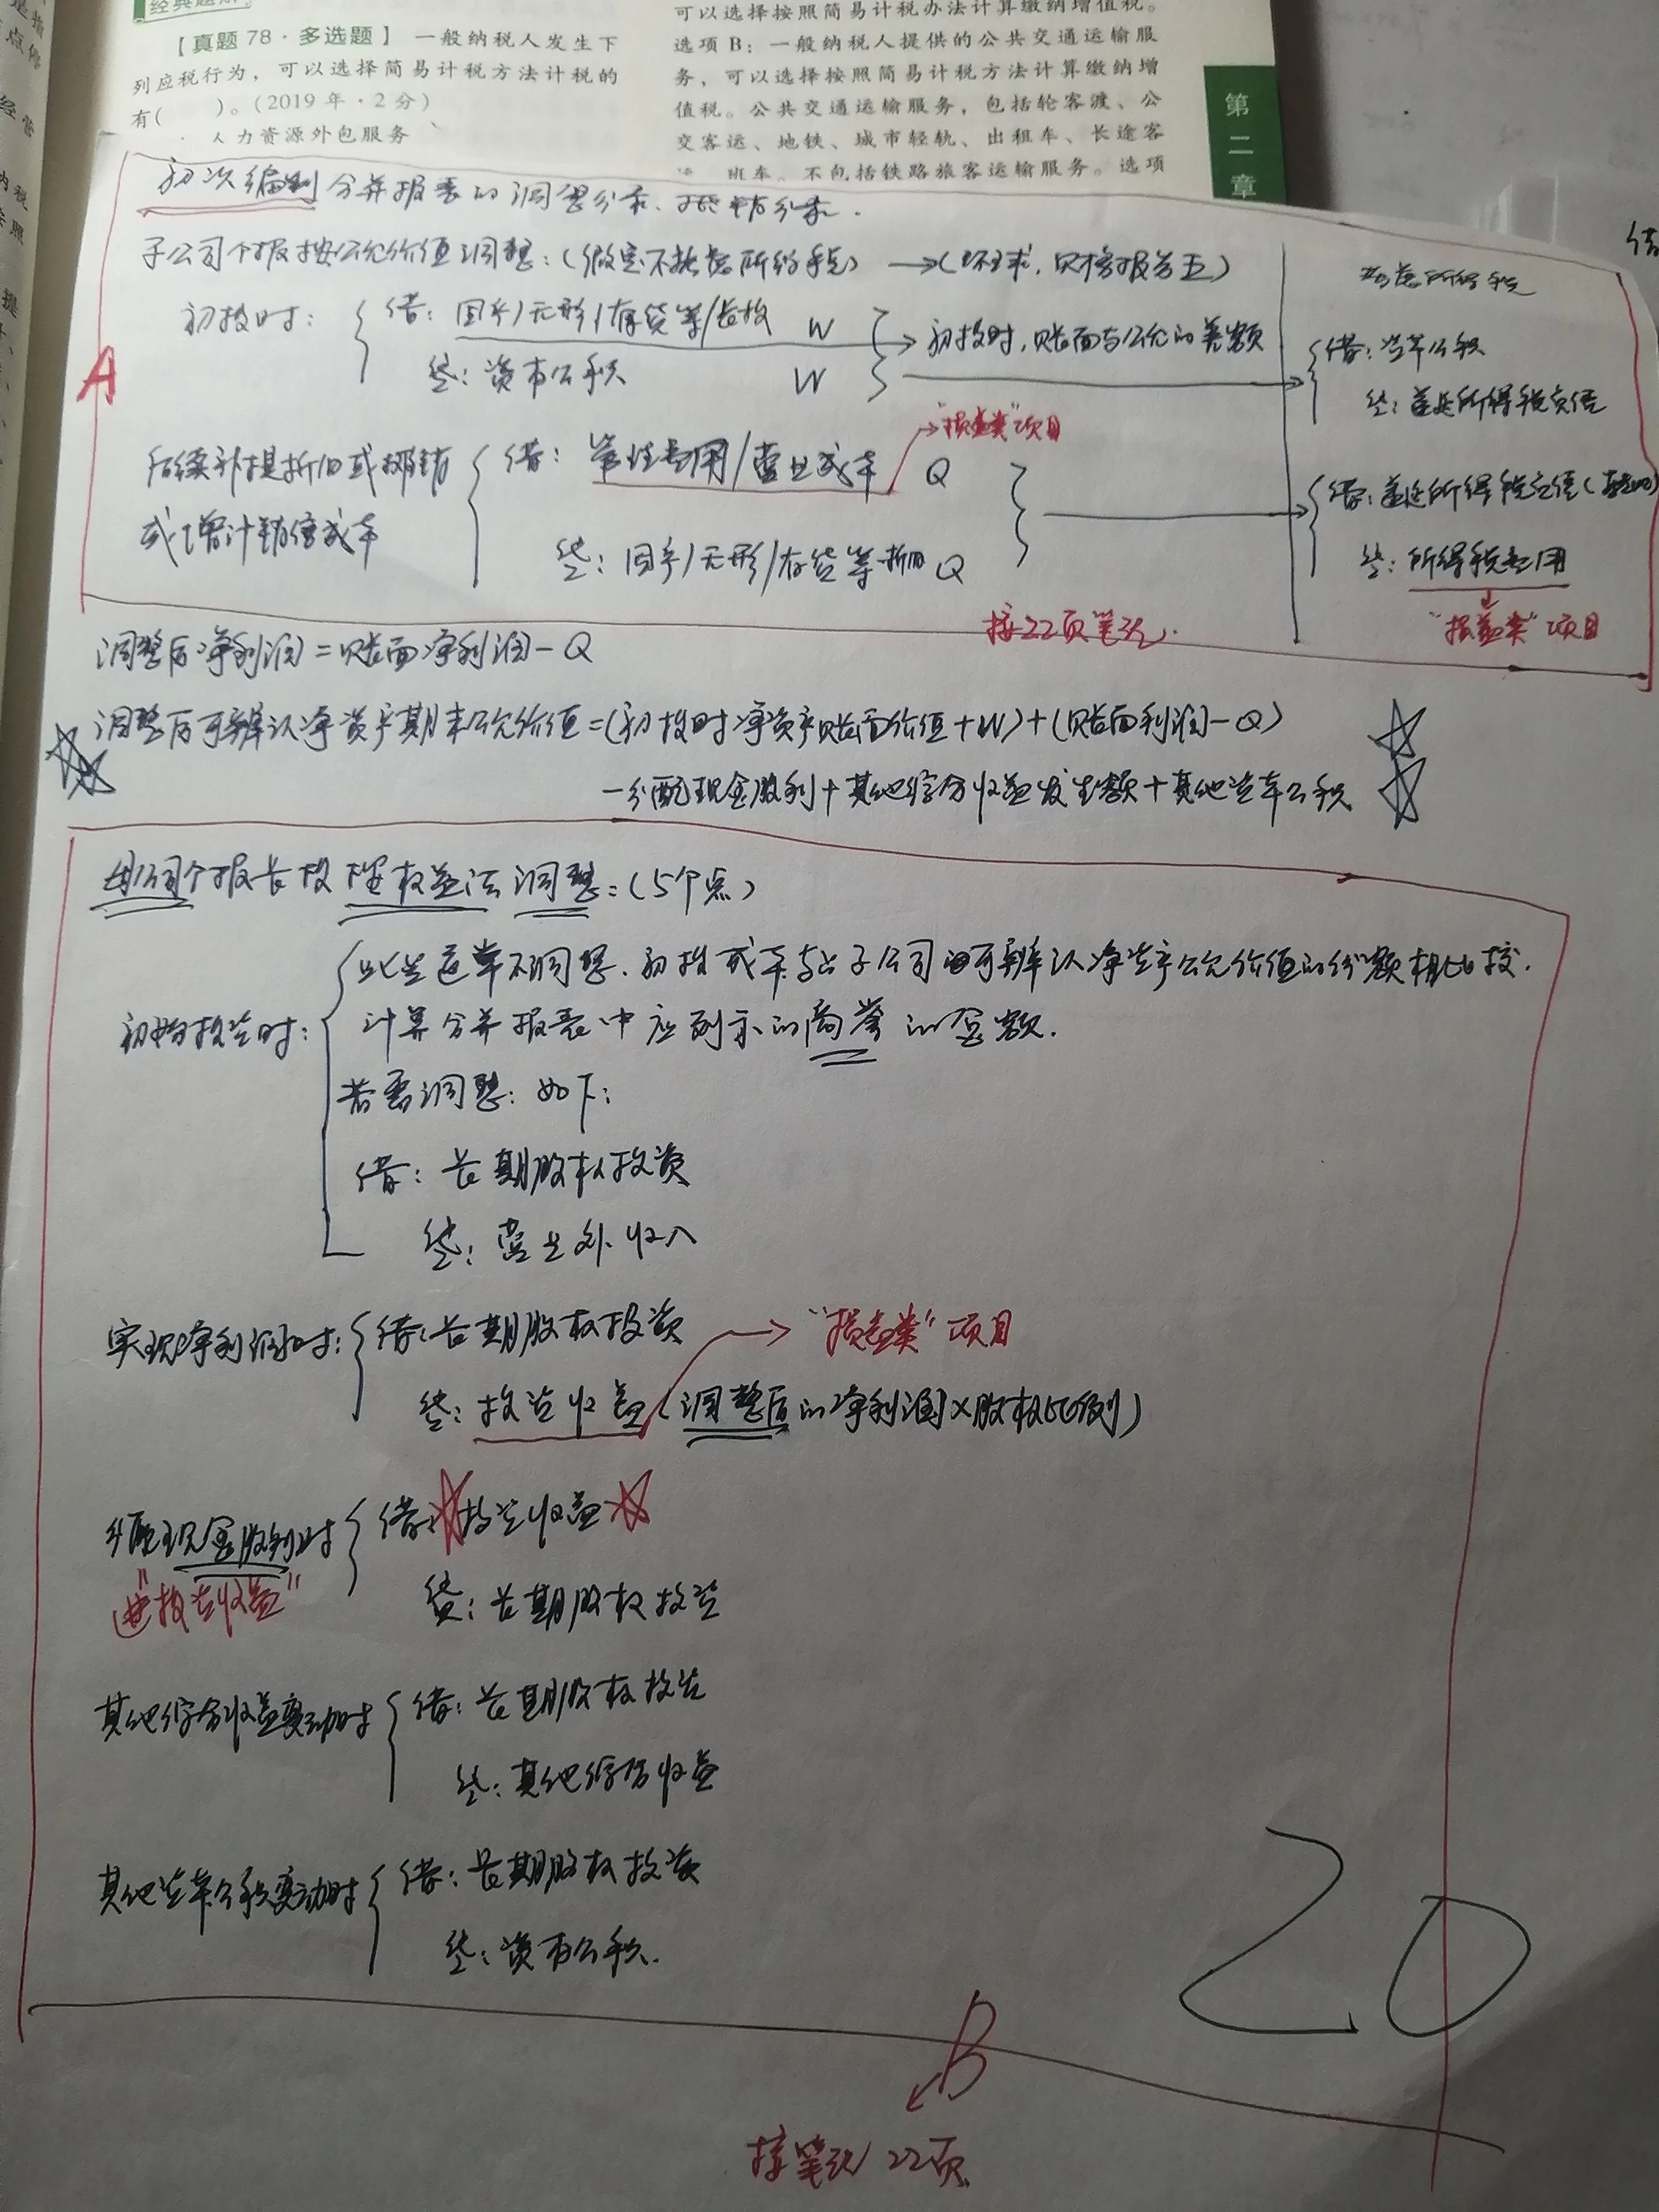 经典题解
【真题 78 · 多选题】 一般纳税人发生下
列应税行为，可以选择简易计税方法计税的
有(　　)。(2019 年 · 2 分)
人力资源外包服务
可以选择按照简易计税办法计算缴纳增值税。
选项 B：一般纳税人提供的公共交通运输服
务，可以选择按照简易计税方法计算缴纳增
值税。公共交通运输服务，包括轮客渡、公
交客运、地铁、城市轻轨、出租车、长途客
班车。不包括铁路旅客运输服务。选项
第二章
初次编制合并报表的调整分录、抵销分录.
A
子公司个报按公允价值调整：(假定不考虑所得税) →(以报告为主)
考虑所得税
初投时： 借：固手/无形/存货等/长投 W
贷：资本公积 W
初投时，账面与公允的差额
借：资本公积
贷：递延所得税负债
后续补提折旧或摊销
或增计销售成本
借：管理费用/营业成本 Q
"损益类"项目
贷：固手/无形/存货等-折旧 Q
借：递延所得税负债
贷：所得税费用
"损益类"项目
接22页笔记.
调整后净利润=账面净利润-Q
调整后可辨认净资产期末公允价值=(初投时净资产账面价值+W)+(账面利润-Q)
-分配现金股利+其他综合收益发生额+其他资本公积
母公司个报长投按权益法调整：(5个点)
初始投资时：
此步通常不调整.初投成本与占子公司可辨认净资产公允价值的份额相比较.
计算合并报表中应列示的商誉的金额.
若需调整：如下：
借：长期股权投资
贷：营业外收入
实现净利润时： 借：长期股权投资
"损益类"项目
贷：投资收益(调整后的净利润×股权比例)
分配现金股利时 借：投资收益
"投资收益"
贷：长期股权投资
其他综合收益变动时 借：长期股权投资
贷：其他综合收益
其他资本公积变动时 借：长期股权投资
贷：资本公积.
20
B
接笔记22页